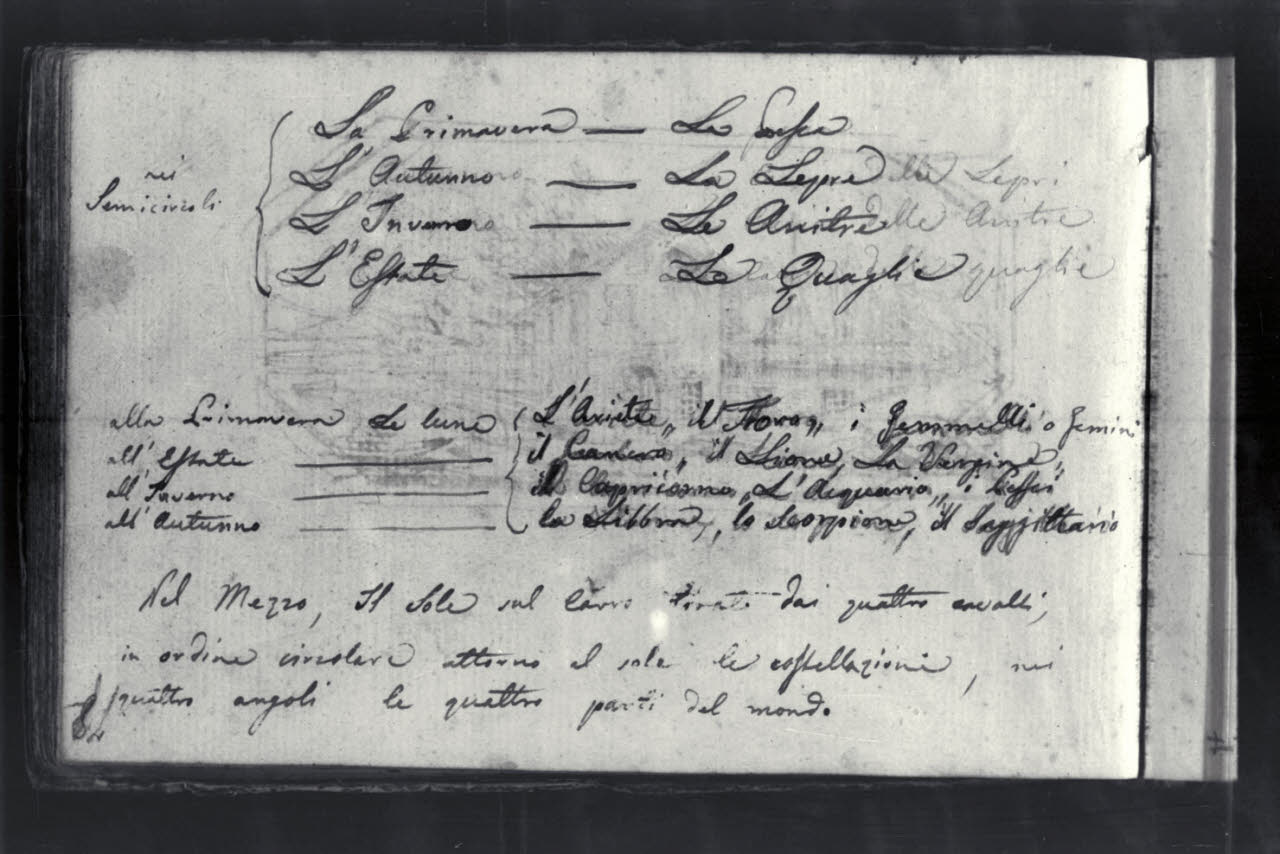 nei
Semicircoli
La Primavera — La Pesca
L'Autunno — La Lepre delle Lepri
L'Inverno — Le Anitre delle Anitre
L'Estate — Le Quaglie quaglie
alla Primavera Le lune { L'Ariete,, il Toro,, i Gemmelli o Gemini
all'Estate — il Cancro,, il Lione, La Vergine,,
all'Inverno — il Capricorno,, L'Acquario,, i Pessi
all'Autunno — la Libbra, lo Scorpione, il Saggittario
Nel Mezzo, Il Sole sul Carro tirato dai quattro cavalli,
in ordine circolare attorno al sole le costellazioni, nei
quattro angoli le quattro parti del mondo